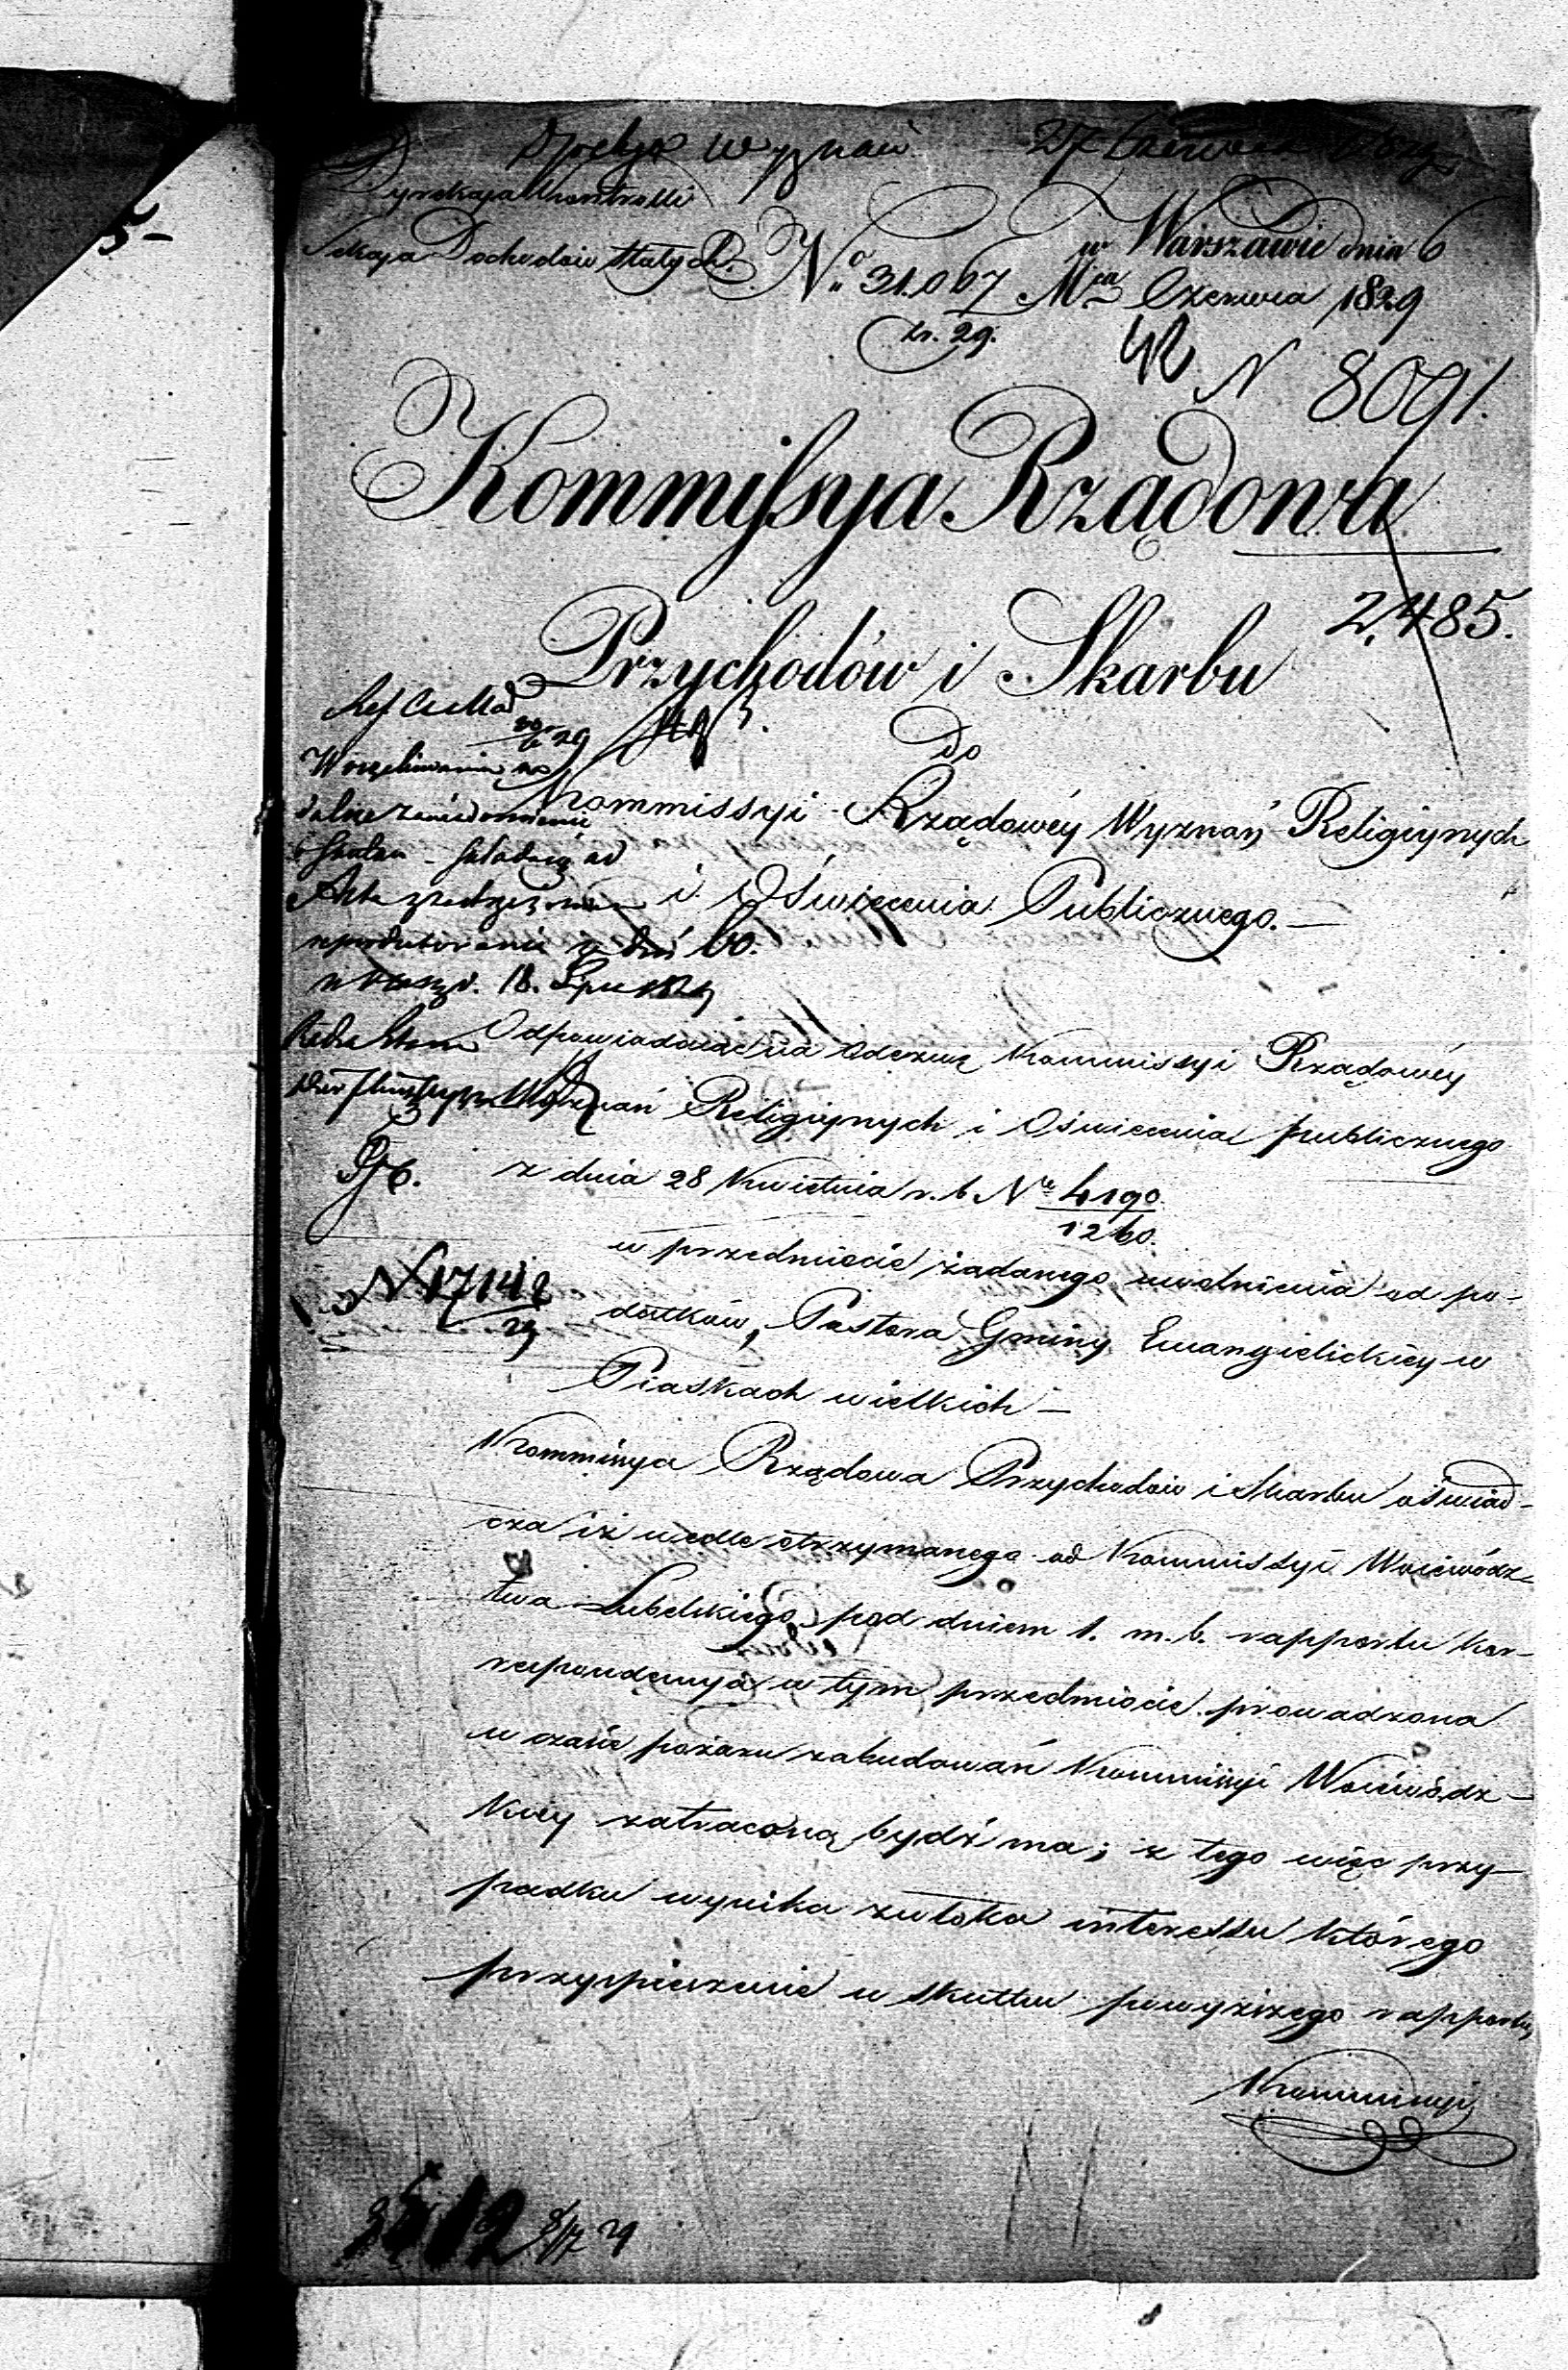 5-
Sekcya Wyznań 27 Czerwca 1829
Dyrekcya Kontrolli
Sekcya Dochodów Stałych. No 31.067 w Warszawie dnia 6
Mca Czerwca 1829
29.
N 8091.
Kommissya Rządowa
2,485.
Przychodów i Skarbu
Do
Kommissyi Rządowéy Wyznań Religiynych
i Oświecenia Publicznego. —
W oczekiwaniu na
dalsze zawiadomienie
Akta
w Warsz. d. 18. Lipca 1829
Odpowiadaiąc na Odezwę Kommissyi Rządowéy
Wyznań Religiynych i Oświecenia publicznego
z dnia 28 Kwietnia r. b. No 4190
1260.
w przedmiocie żądanego uwolnienia od po-
datków, Pastora Gminy Ewangielickiey w
Piaskach wielkich —
N 17142
29
Kommissya Rządowa Przychodów i Skarbu oświad-
cza iż wedle otrzymanego od Kommissyi Woiewódz-
twa Lubelskiego pod dniem 1. m. b. rapportu kor-
respondencya w tym przedmiocie prowadzona
w czasie pożaru zabudowań Kommissyi Woiewódz-
kiey zatraconą bydź ma; z tego więc przy-
padku wynika zwłoka interessu którego
przyspieszenie w skutku powyższego rapportu,
Kommissyi
29